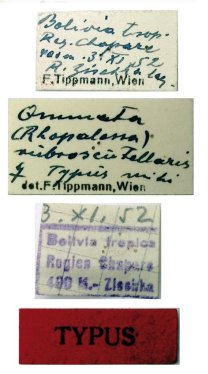 Bolivia trop.
Reg. Chapare
3. XI. 52
R. Zischka leg.
F. Tippmann, Wien
Ommata
(Rhopalessa)
rubroscutellaris
Typus mihi
det. F. Tippmann, Wien
3. XI. 52
Bolivia tropica
Region Chapare
400 M.- Zischka
TYPUS